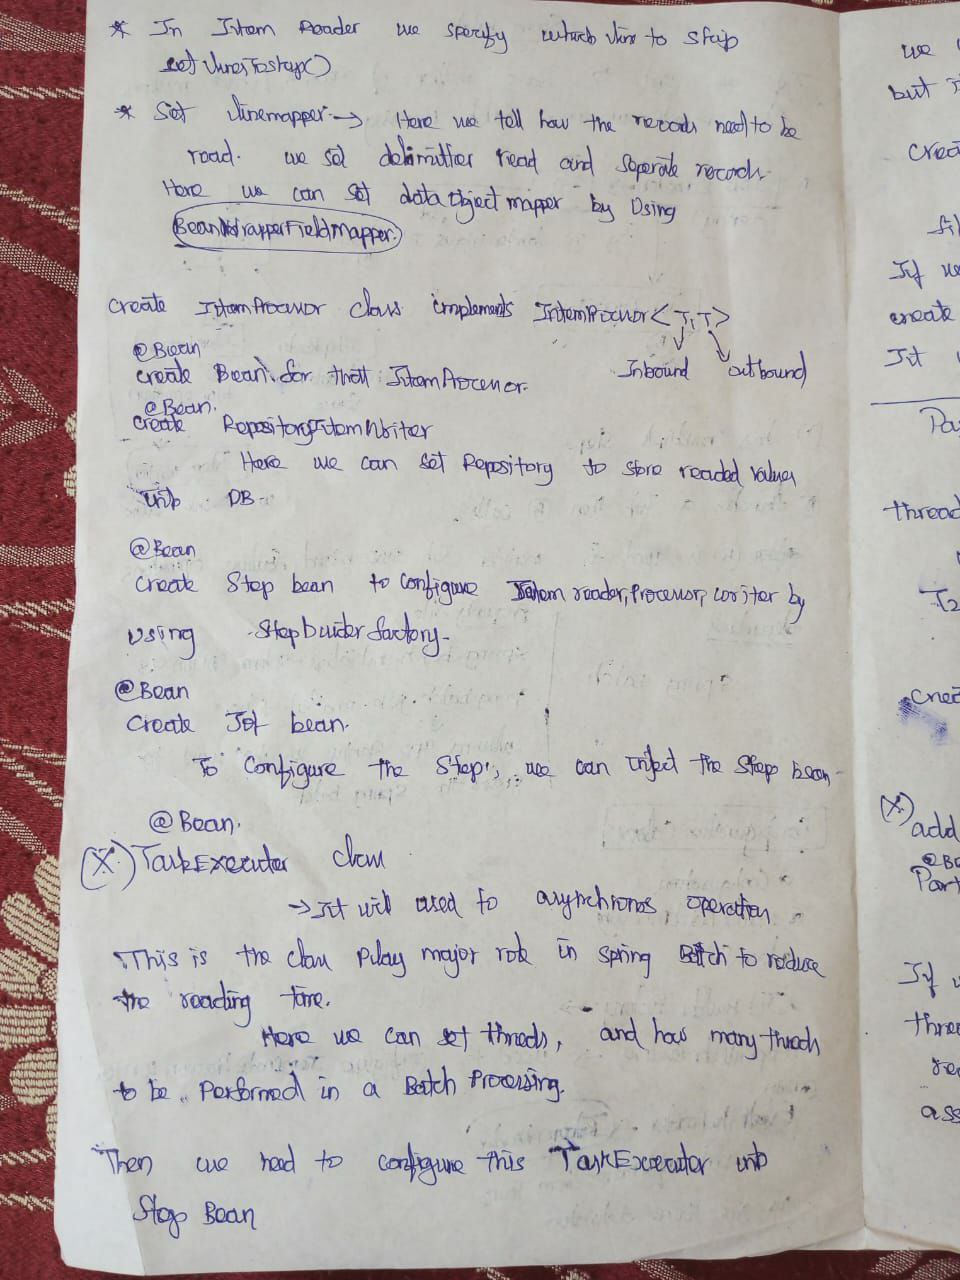 * In Item Reader we specify which line to skip
set LinesToSkip()
* Set linemapper → Here we tell how the records need to be
read. we set delimitter read and seperate records.
Here we can set data object mapper by Using
BeanWrapperFieldMapper.
Create ItemProcessor class implements ItemProcessor<T,T>
Inbound outbound
@Bean
create Bean for that ItemProcessor.
@Bean.
create RepositoryItemWriter
Here we can set Repository to store readed values
into DB-
@Bean
create Step bean to configure Item reader, Processor, writer by
using StepbuiderFactory-
@Bean
Create Job bean.
To Configure the Step, we can inject the step bean-
@Bean.
(X) TaskExecuter class
→ It will used to asynchronos operation
This is the class play major role in spring Batch to reduce
the reading time.
Here we can set threds, and how many threds
to be Performed in a Batch Processing.
Then we need to configure this TaskExecuter into
Step Bean
we
but i
Crea
fil
If we
create
It
Pa
thread
T2
Crea
(X) add
@Be
Part
If
thre
re
ass